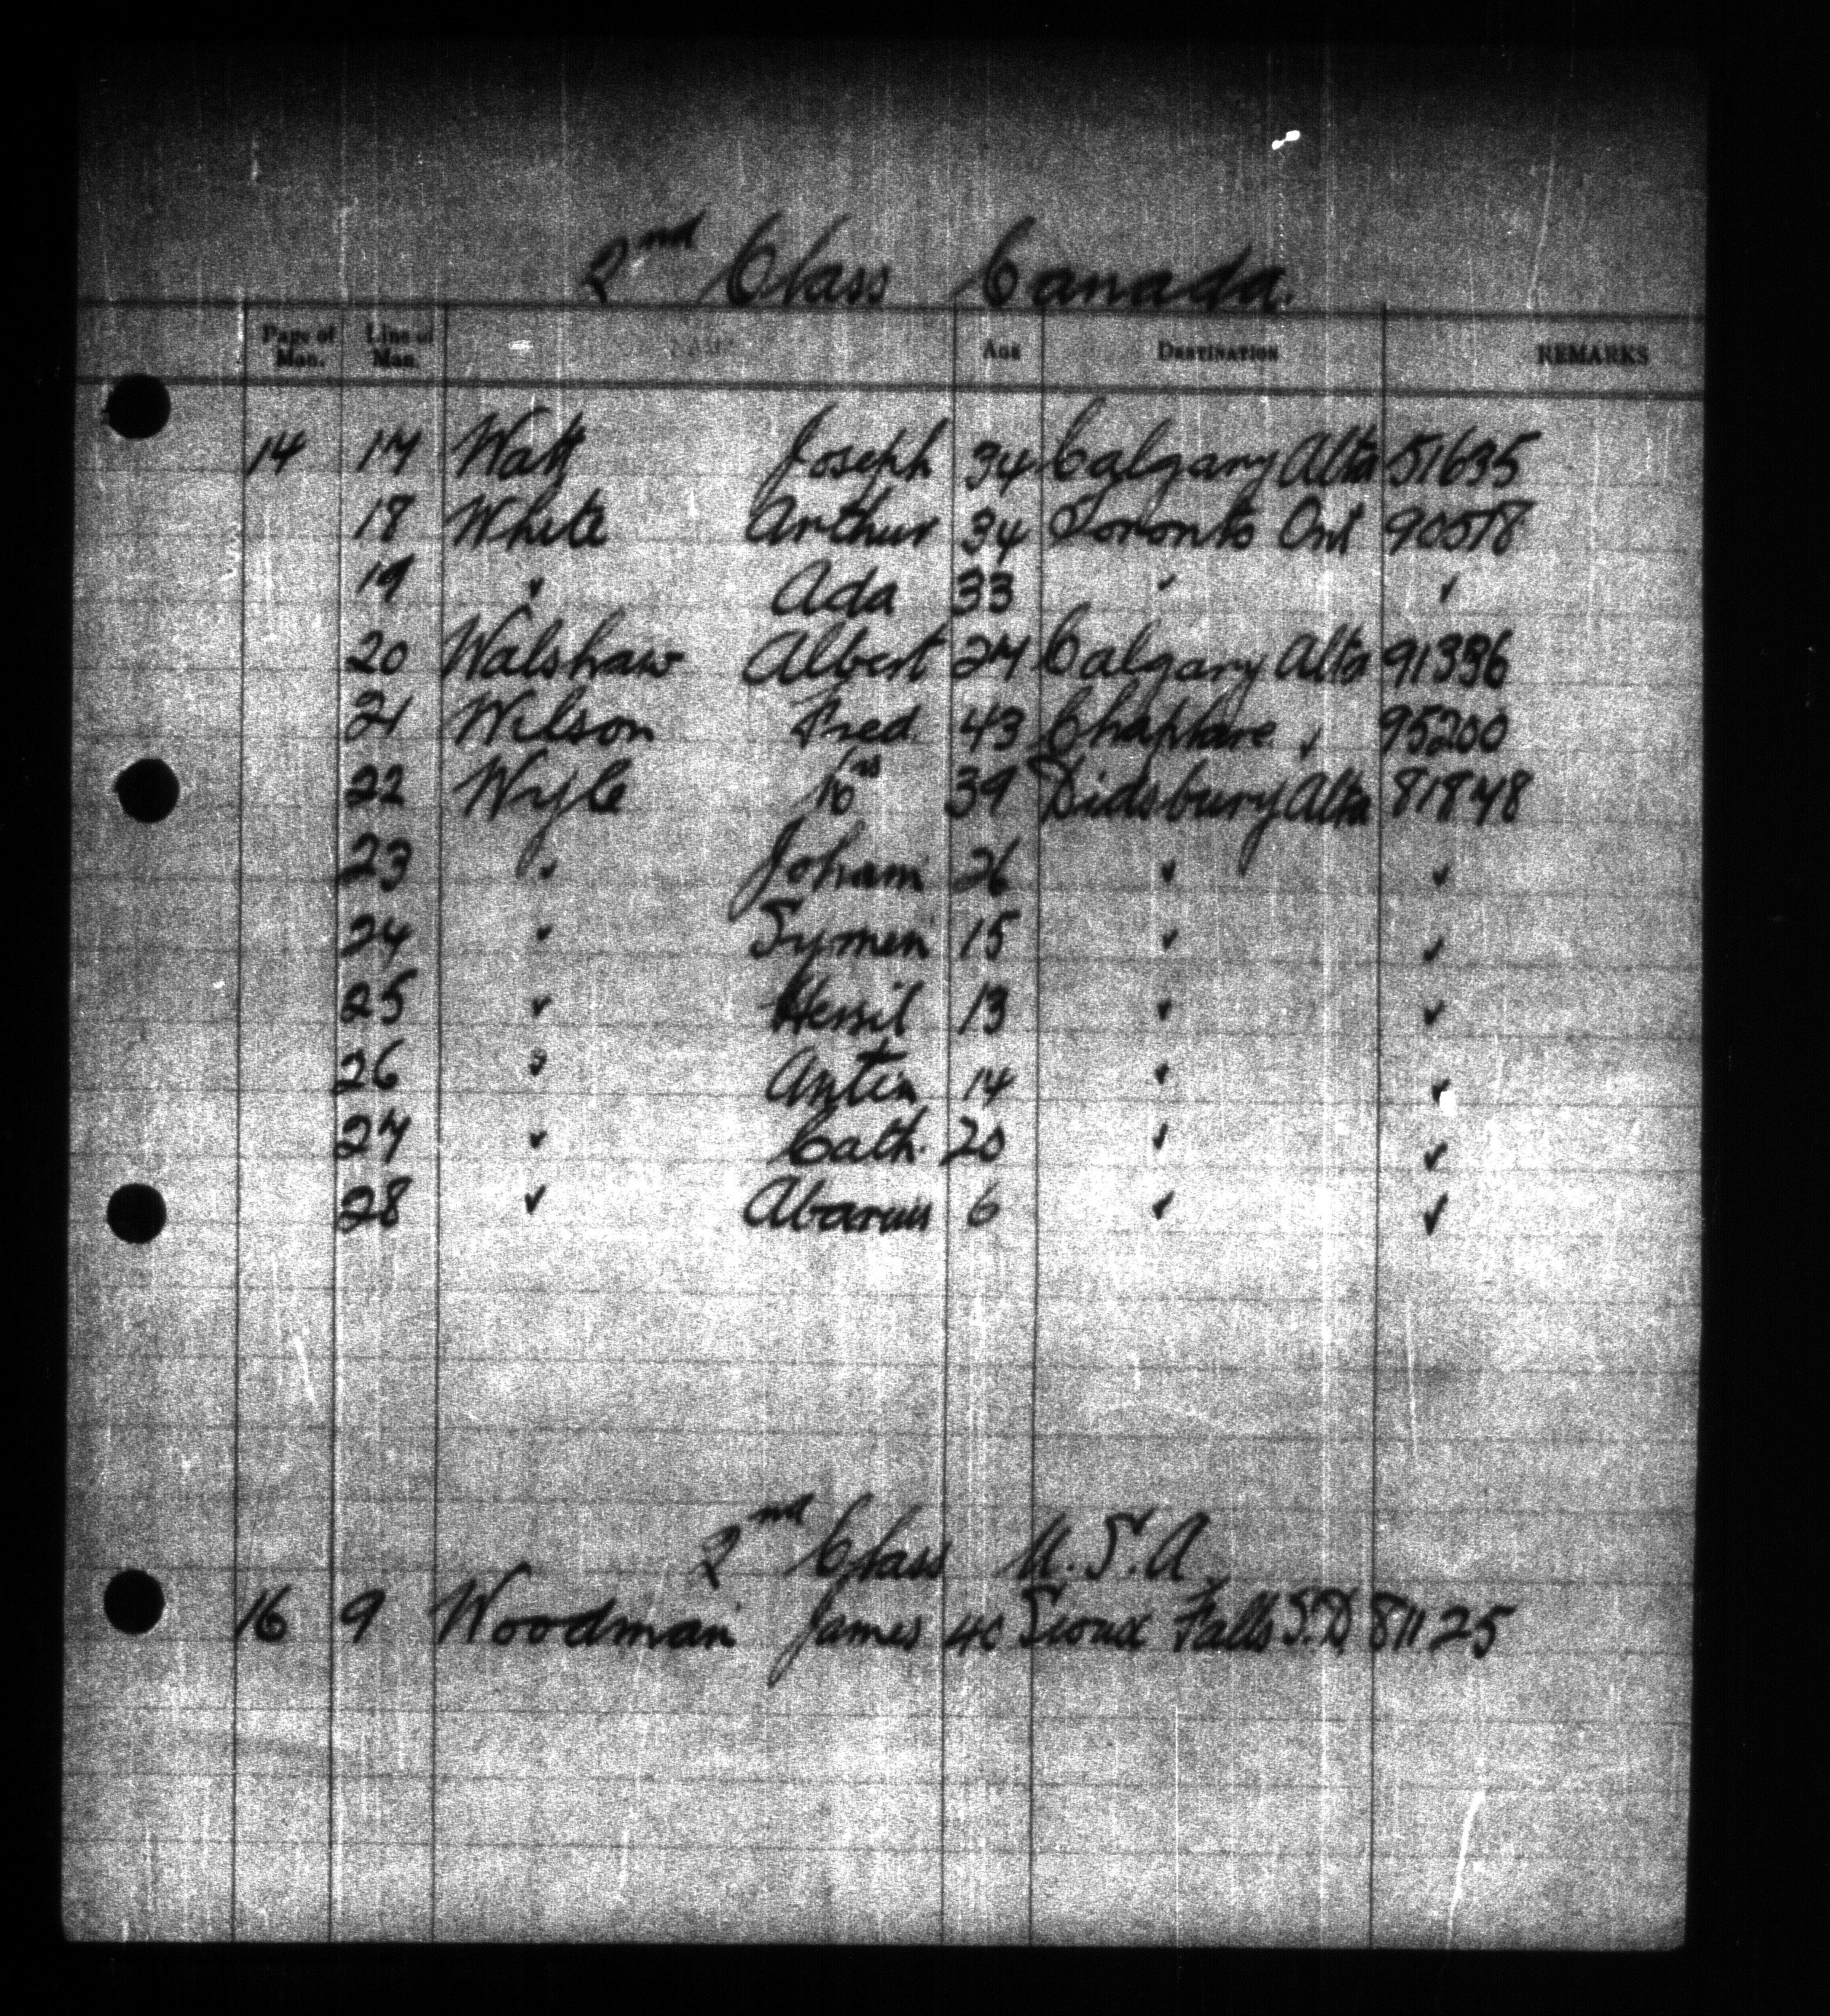 2nd Class Canada.
Page of Man. Line of Man. NAME AGE DESTINATION REMARKS
14 17 Watt Joseph 34 Calgary Alta 51635
18 White Arthur 34 Toronto Ont
19 " Ada 33 " "
20 Walshaw Albert 27 Calgary Alta 91336
21 Wilson Fred. 43 " 95200
22 Wyle 39 Didsbury Alta 81848
23 " Joham 26 " "
24 " Symen 15 " "
25 " 13 " "
26 " Antin 14 " "
27 " Cath. 20 " "
28 " 6 " "
2nd Class U.S.A.
16 9 Woodman James 40 Sioux Falls S.D 81125